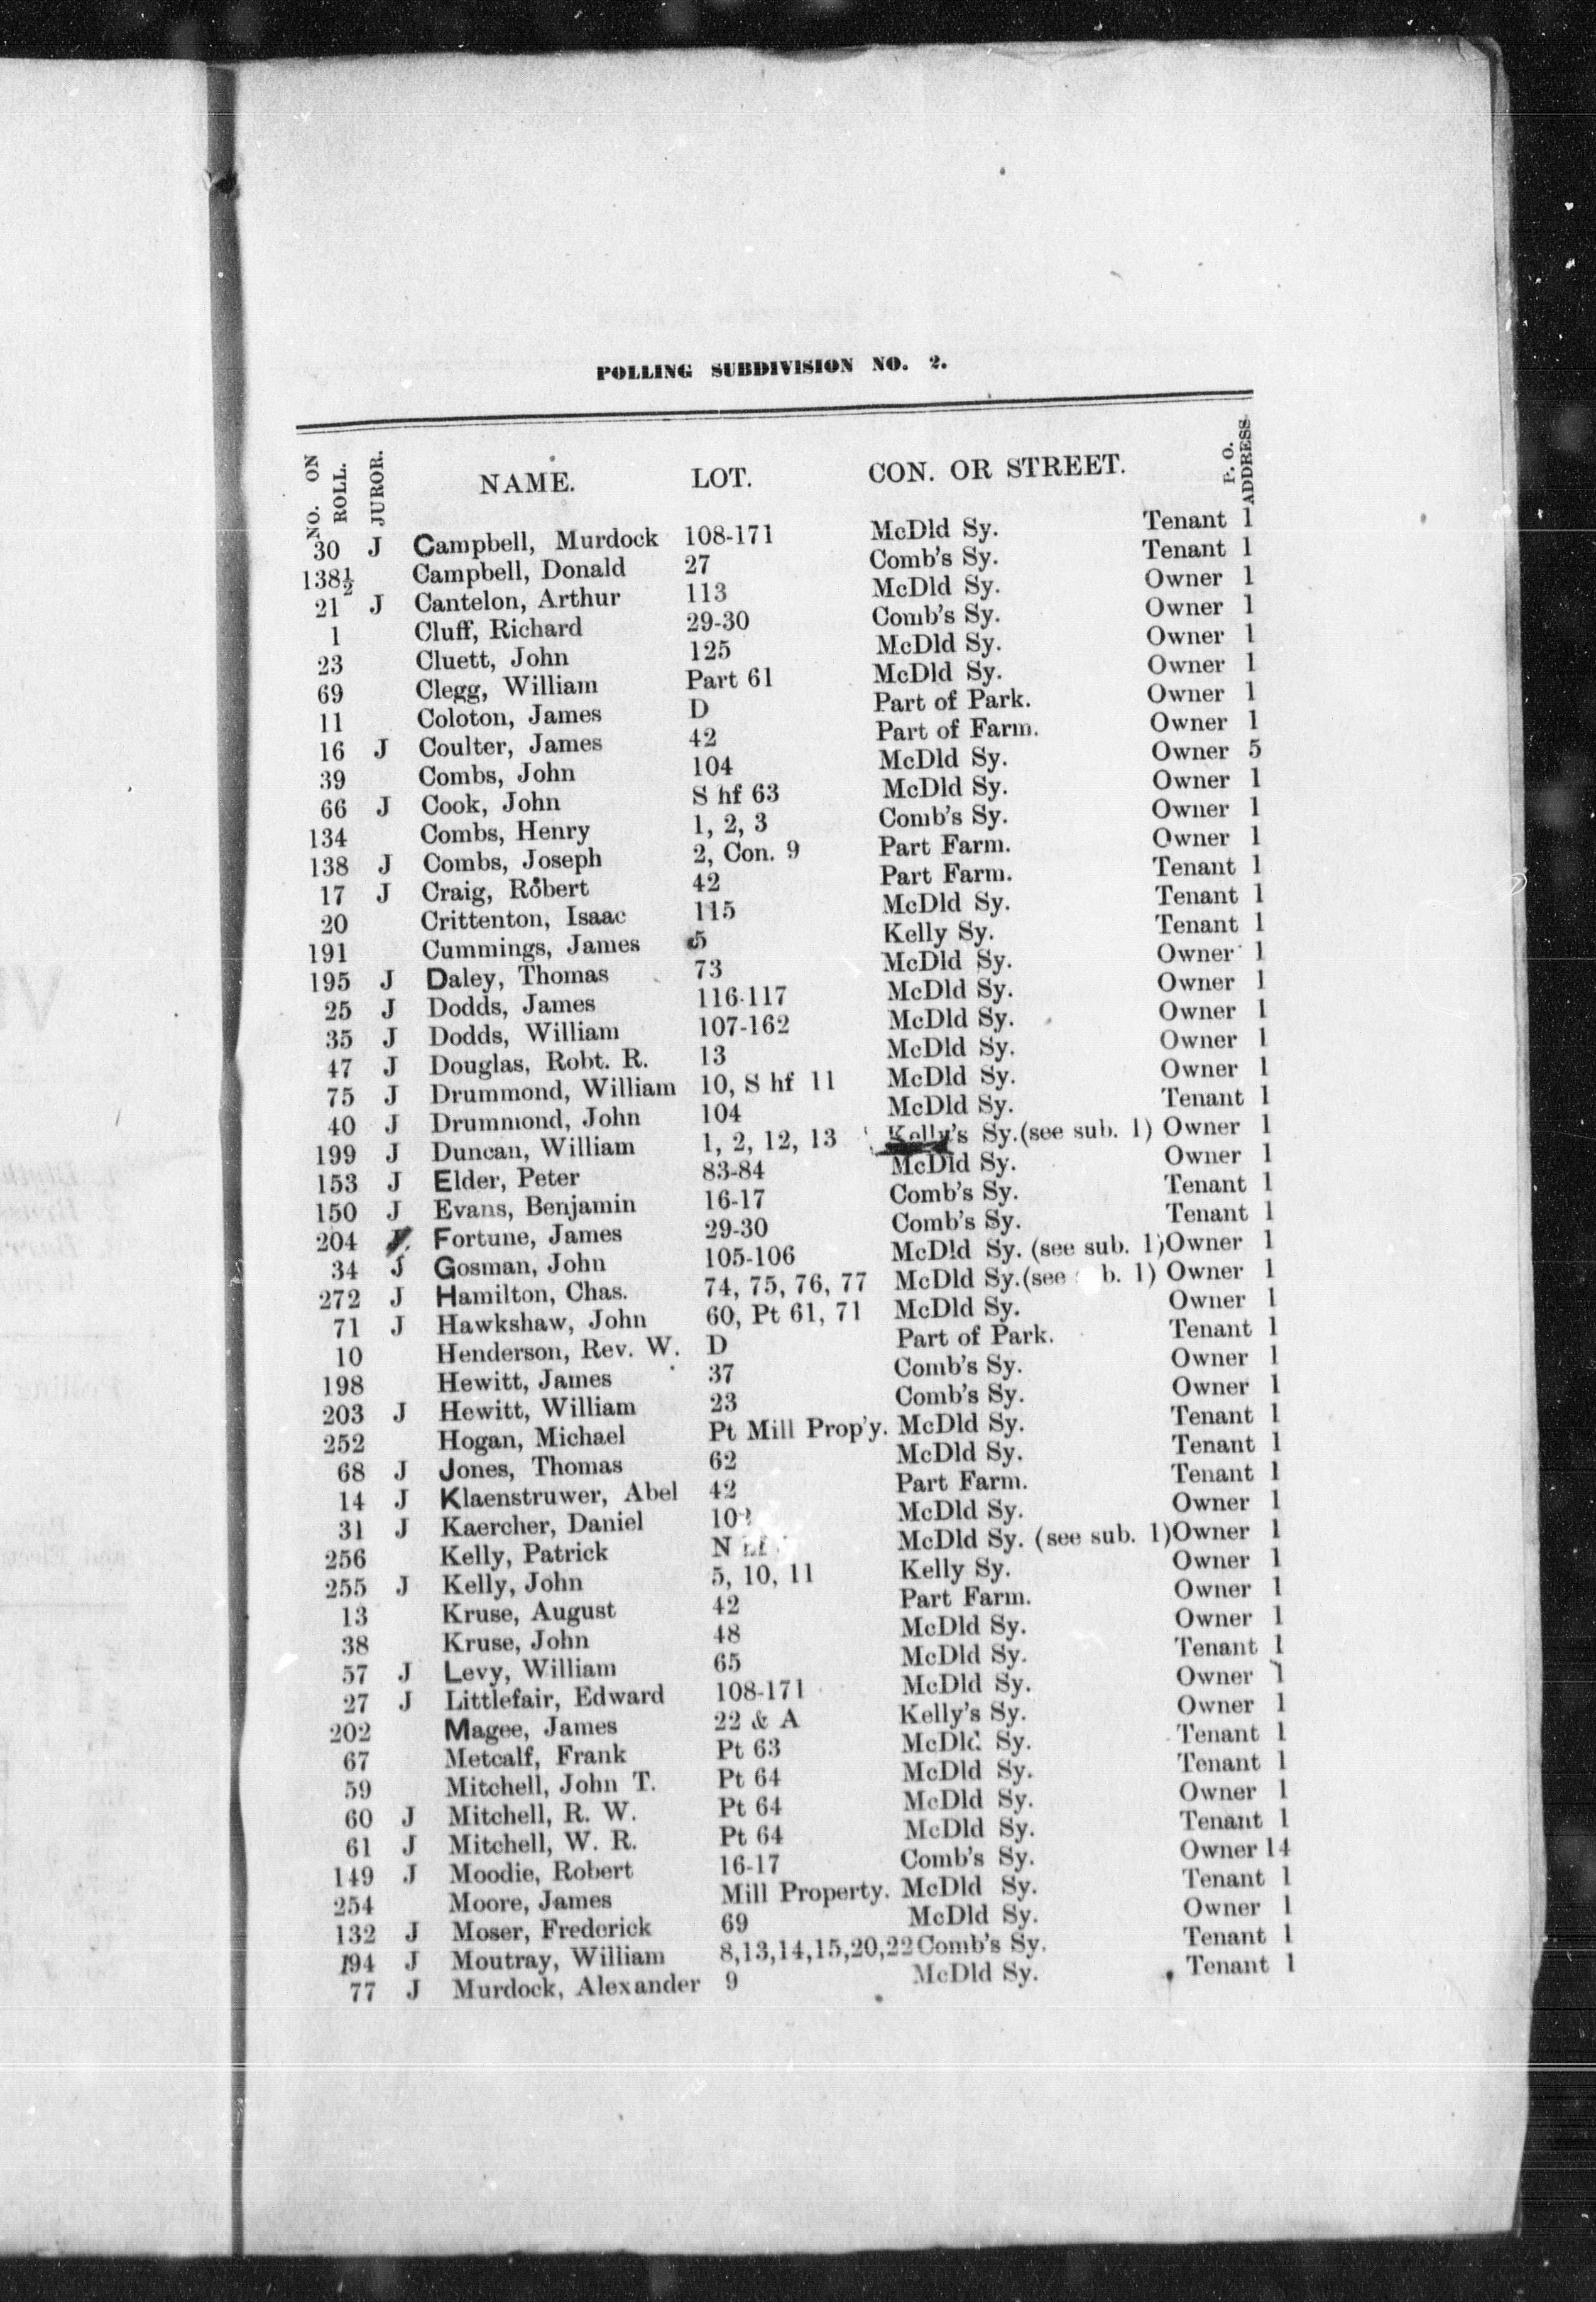 POLLING SUBDIVISION NO. 2.
NO. ON ROLL. JUROR. NAME. LOT. CON. OR STREET. P. O. ADDRESS
30 J Campbell, Murdock 108-171 McDld Sy. Tenant 1
138½ Campbell, Donald 27 Comb's Sy. Tenant 1
21 J Cantelon, Arthur 113 McDld Sy. Owner 1
1 Cluff, Richard 29-30 Comb's Sy. Owner 1
23 Cluett, John 125 McDld Sy. Owner 1
69 Clegg, William Part 61 McDld Sy. Owner 1
11 Coloton, James D Part of Park. Owner 1
16 J Coulter, James 42 Part of Farm. Owner 1
39 Combs, John 104 McDld Sy. Owner 5
66 J Cook, John S hf 63 McDld Sy. Owner 1
134 Combs, Henry 1, 2, 3 Comb's Sy. Owner 1
138 J Combs, Joseph 2, Con. 9 Part Farm. Owner 1
17 J Craig, Robert 42 Part Farm. Tenant 1
20 Crittenton, Isaac 115 McDld Sy. Tenant 1
191 Cummings, James 5 Kelly Sy. Tenant 1
195 J Daley, Thomas 73 McDld Sy. Owner 1
25 J Dodds, James 116-117 McDld Sy. Owner 1
35 J Dodds, William 107-162 McDld Sy. Owner 1
47 J Douglas, Robt. R. 13 McDld Sy. Owner 1
75 J Drummond, William 10, S hf 11 McDld Sy. Owner 1
40 J Drummond, John 104 McDld Sy. Tenant 1
199 J Duncan, William 1, 2, 12, 13 Kelly's Sy.(see sub. 1) Owner 1
153 J Elder, Peter 83-84 McDld Sy. Owner 1
150 J Evans, Benjamin 16-17 Comb's Sy. Tenant 1
204 Fortune, James 29-30 Comb's Sy. Tenant 1
34 J Gosman, John 105-106 McDld Sy. (see sub. 1)Owner 1
272 J Hamilton, Chas. 74, 75, 76, 77 McDld Sy.(see b. 1) Owner 1
71 J Hawkshaw, John 60, Pt 61, 71 McDld Sy. Owner 1
10 Henderson, Rev. W. D Part of Park. Tenant 1
198 Hewitt, James 37 Comb's Sy. Owner 1
203 J Hewitt, William 23 Comb's Sy. Owner 1
252 Hogan, Michael Pt Mill Prop'y. McDld Sy. Tenant 1
68 J Jones, Thomas 62 McDld Sy. Tenant 1
14 J Klaenstruwer, Abel 42 Part Farm. Tenant 1
31 J Kaercher, Daniel McDld Sy. Owner 1
256 Kelly, Patrick N McDld Sy. (see sub. 1)Owner 1
255 J Kelly, John 5, 10, 11 Kelly Sy. Owner 1
13 Kruse, August 42 Part Farm. Owner 1
38 Kruse, John 48 McDld Sy. Owner 1
57 J Levy, William 65 McDld Sy. Tenant 1
27 J Littlefair, Edward 108-171 McDld Sy. Owner 1
202 Magee, James 22 & A Kelly's Sy. Owner 1
67 Metcalf, Frank Pt 63 McDld Sy. Tenant 1
59 Mitchell, John T. Pt 64 McDld Sy. Tenant 1
60 J Mitchell, R. W. Pt 64 McDld Sy. Owner 1
61 J Mitchell, W. R. Pt 64 McDld Sy. Tenant 1
149 J Moodie, Robert 16-17 Comb's Sy. Owner 14
254 Moore, James Mill Property. McDld Sy. Tenant 1
132 J Moser, Frederick 69 McDld Sy. Owner 1
194 J Moutray, William 8,13,14,15,20,22 Comb's Sy. Tenant 1
77 J Murdock, Alexander 9 McDld Sy. Tenant 1